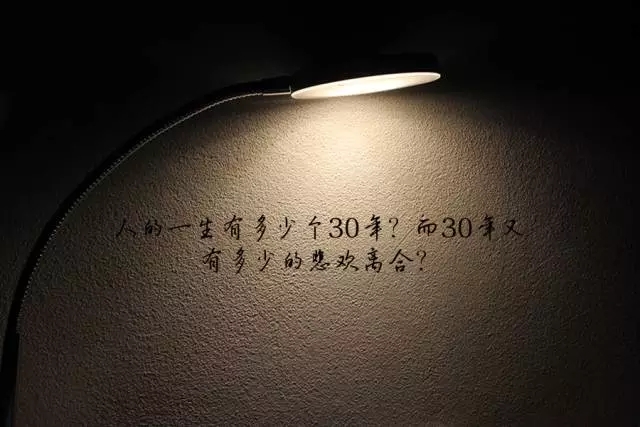 人的一生有多少个30年？而30年又
有多少的悲欢离合？